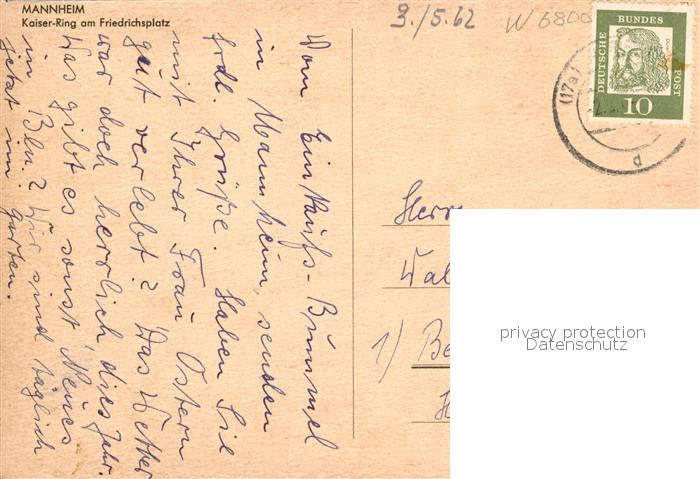 MANNHEIM
Kaiser-Ring am Friedrichsplatz
3./5.62
W 6800
DEUTSCHE BUNDES POST
10
(17a)
d
Vom Einkaufs-Bummel
in Mannheim, senden
frdl. Grüße. Haben Sie
mit Ihrer Frau Ostern
gut verlebt? Das Wetter
war doch herrlich dies Jahr.
Was gibt es sonst Neues
in Bln.? Wir sind täglich
jetzt im Garten.
Herrn
Wal
1) Be
privacy protection
Datenschutz